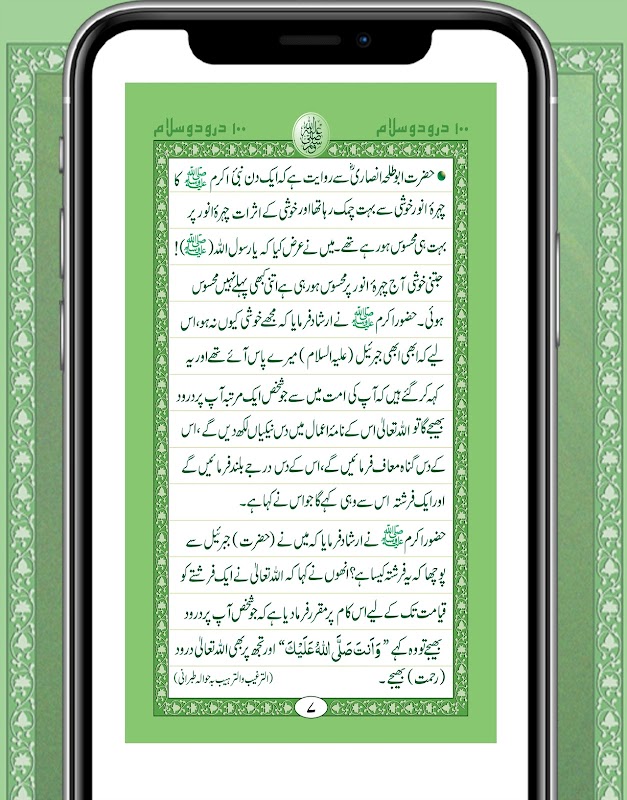 ۱۰۰ درود و سلام
۱۰۰ درود و سلام
حضرت ابوطلحہ انصاریؓ سے روایت ہے کہ ایک دن نبیٔ اکرم ﷺ کا
چہرۂ انور خوشی سے بہت چمک رہا تھا اور خوشی کے اثرات چہرۂ انور پر
بہت ہی محسوس ہو رہے تھے۔ میں نے عرض کیا کہ یا رسول اللہ (ﷺ)!
جتنی خوشی آج چہرۂ انور پر محسوس ہو رہی ہے اتنی کبھی پہلے نہیں محسوس
ہوئی۔ حضور اکرم ﷺ نے ارشاد فرمایا کہ مجھے خوشی کیوں نہ ہو، اس
لیے کہ ابھی ابھی جبرئیل (علیہ السلام) میرے پاس آئے تھے اور یہ
کہہ کر گئے ہیں کہ آپ کی امت میں سے جو شخص ایک مرتبہ آپ پر درود
بھیجے گا تو اللہ تعالیٰ اس کے نامۂ اعمال میں دس نیکیاں لکھ دیں گے، اس
کے دس گناہ معاف فرمائیں گے، اس کے دس درجے بلند فرمائیں گے
اور ایک فرشتہ اس سے وہی کہے گا جو اس نے کہا ہے۔
حضور اکرم ﷺ نے ارشاد فرمایا کہ میں نے (حضرت) جبرئیل سے
پوچھا کہ یہ فرشتہ کیسا ہے؟ انھوں نے کہا کہ اللہ تعالیٰ نے ایک فرشتے کو
قیامت تک کے لیے اس کام پر مقرر فرما دیا ہے کہ جو شخص آپ پر درود
بھیجے تو وہ کہے ”وَاَنتَ صَلَّی اللهُ عَلَيْكَ“ اور تجھ پر بھی اللہ تعالیٰ درود
(رحمت) بھیجے۔ (الترغیب والترہیب بہ حوالہ طبرانی)
۷